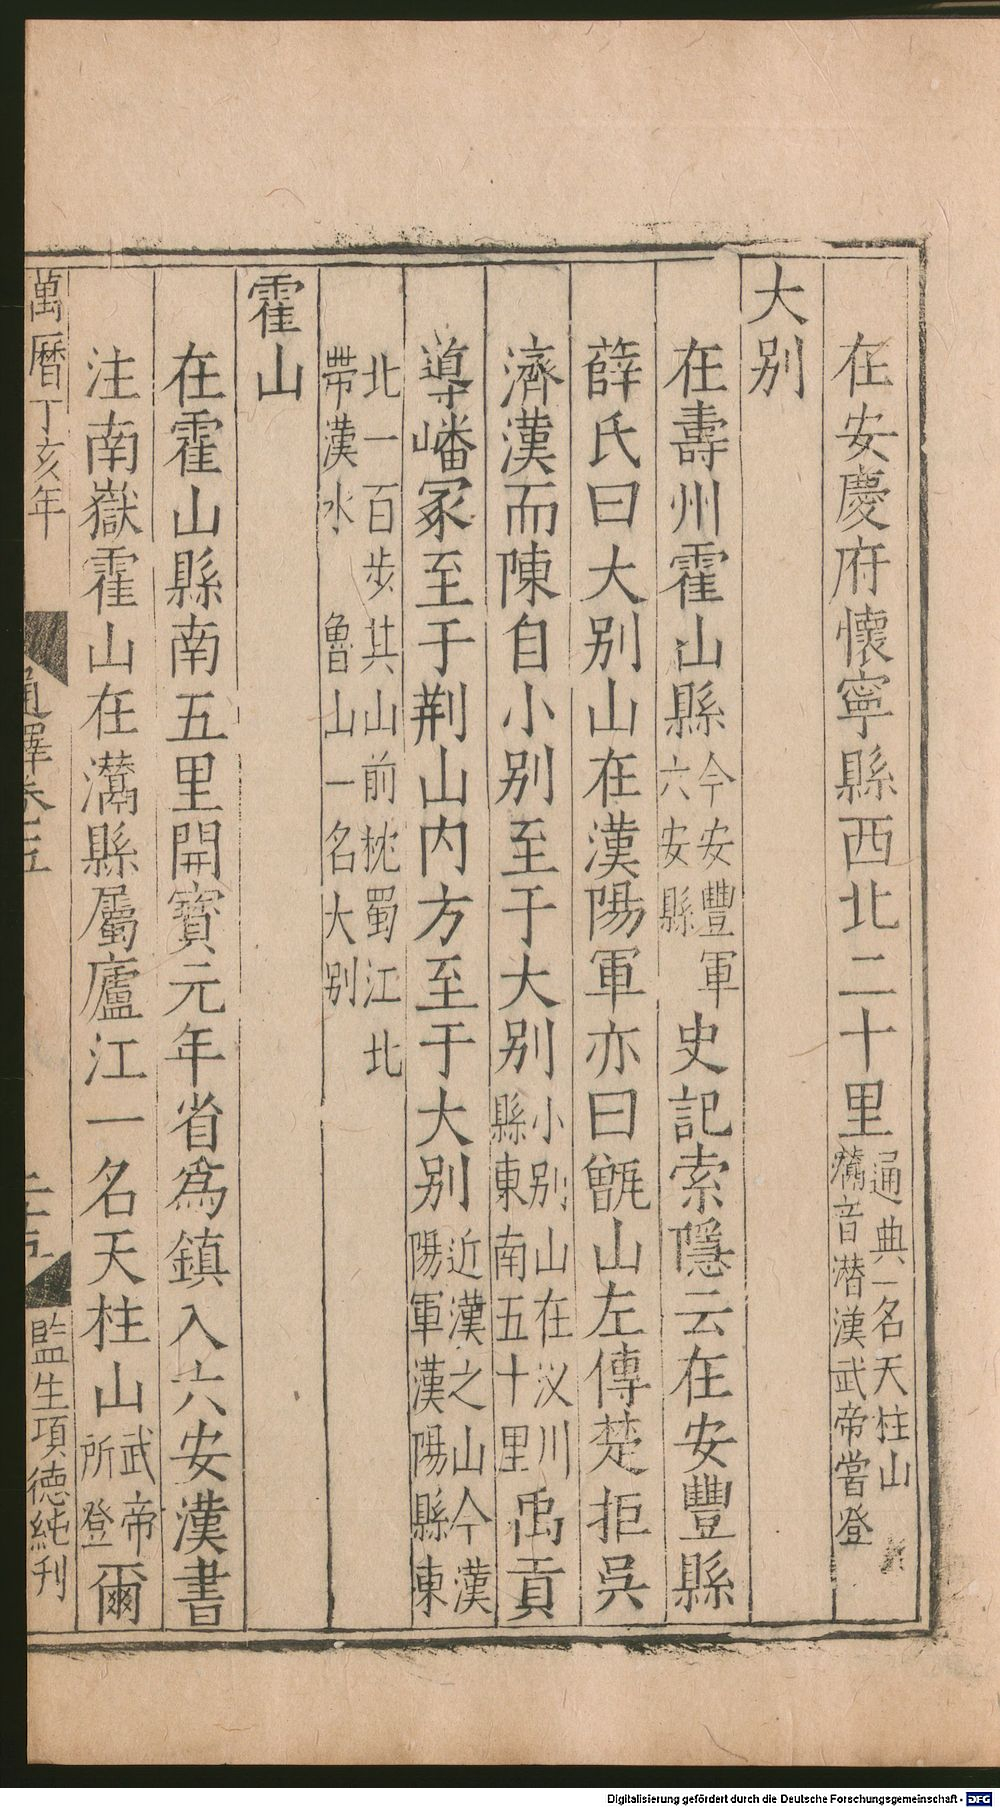 在安慶府懷寧縣西北二十里通典一名天柱山灊音潜漢武帝嘗登
大别
在壽州霍山縣今安豐軍六安縣史記索隱云在安豐縣
薛氏曰大别山在漢陽軍亦曰甑山左傳楚拒吳
濟漢而陳自小别至于大别小别山在汊川縣東南五十里禹貢
導嶓冢至于荆山内方至于大别近漢之山今漢陽軍漢陽縣東
北一百步其山前枕蜀江北帶漢水 魯山一名大别
霍山
在霍山縣南五里開寶元年省為鎮入六安漢書
注南嶽霍山在灊縣屬廬江一名天柱山武帝所登爾
萬曆丁亥年
通釋卷五
監生項德純刋
Digitalisierung gefördert durch die Deutsche Forschungsgemeinschaft - DFG